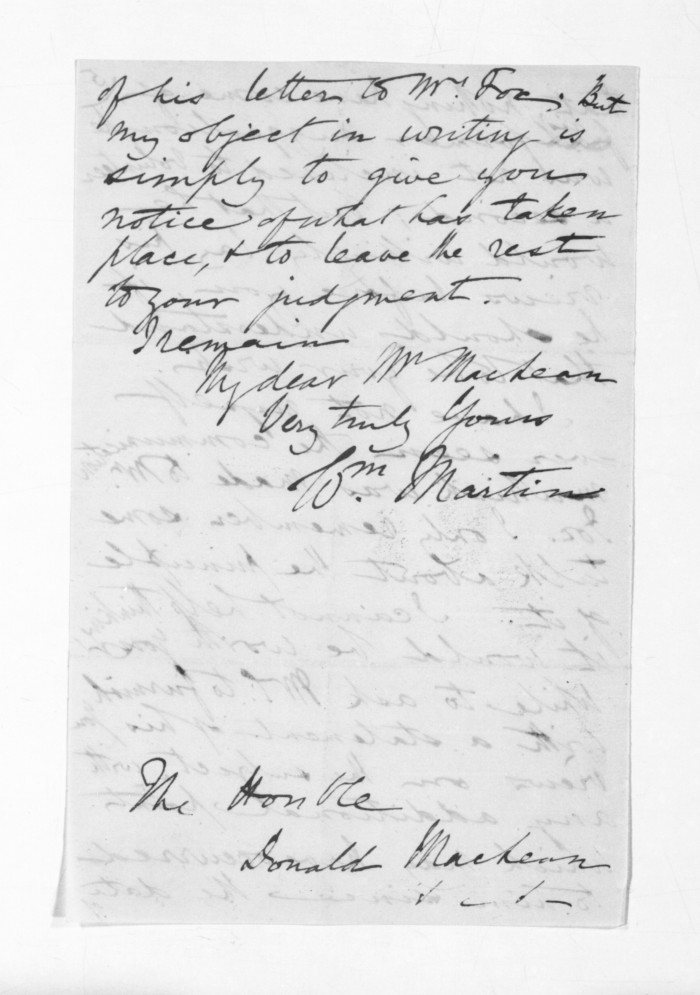 of his letter to Mr. Fox. But
my object in writing is
simply to give you
notice of what has taken
place, & to leave the rest
to your judgment.
I remain
My dear Mr McLean
Very truly Yours
Wm. Martin
The Honble
Donald McLean